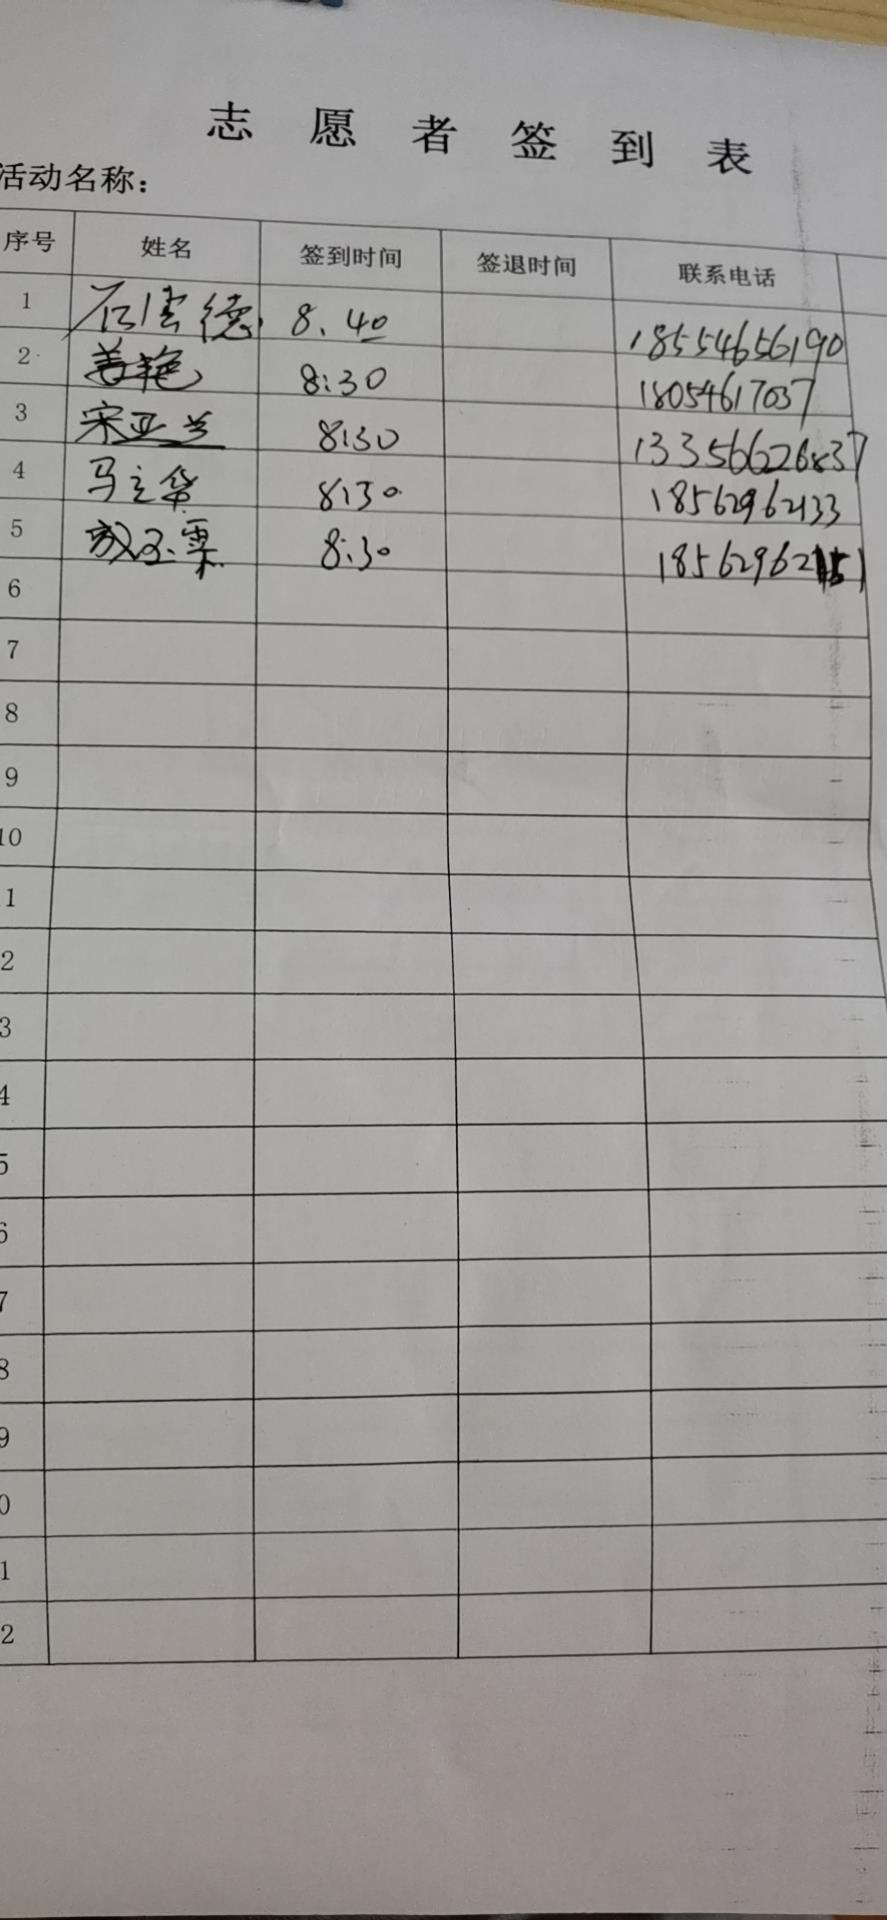 志愿者签到表
活动名称：
序号 姓名 签到时间 签退时间 联系电话
1 石宝德 8.40 18554656190
2 姜艳 8:30 18054617037
3 宋亚兰 8:30 13356626837
4 马立华 8:30 18562962133
5 8:30
6
7
8
9
10
1
2
3
4
5
6
7
8
9
0
1
2